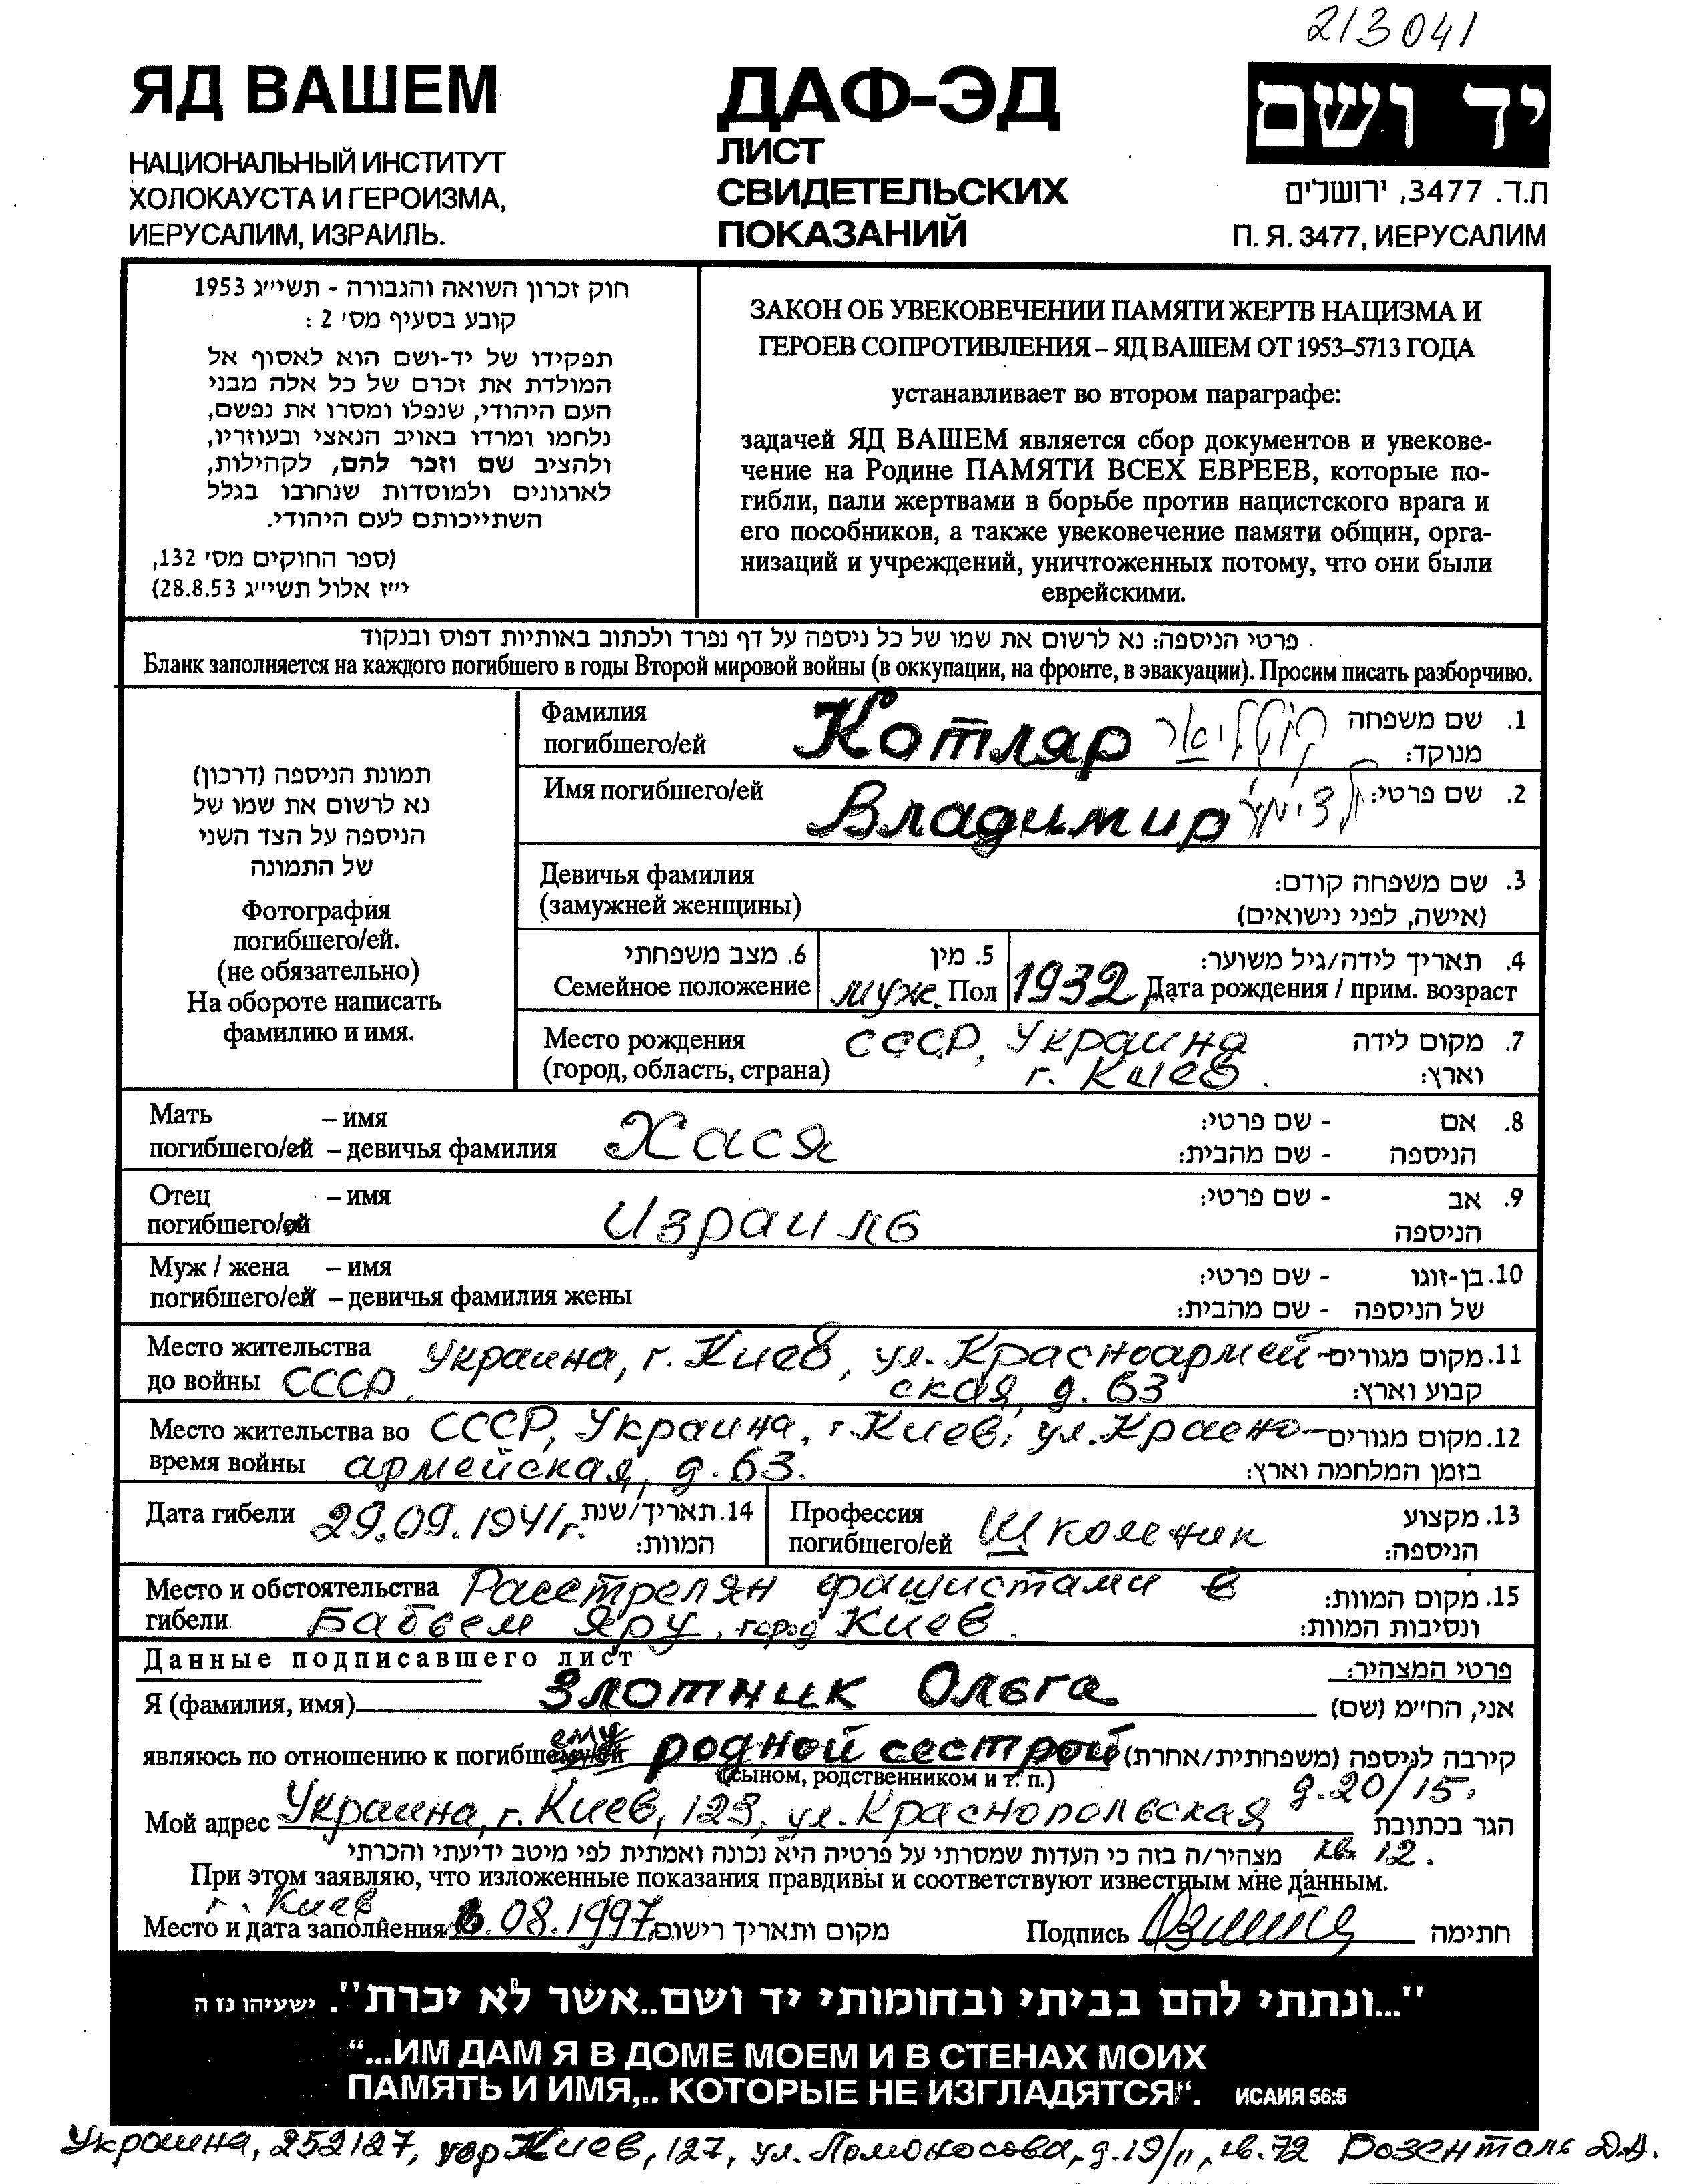 213041
ЯД ВАШЕМ
НАЦИОНАЛЬНЫЙ ИНСТИТУТ
ХОЛОКАУСТА И ГЕРОИЗМА,
ИЕРУСАЛИМ, ИЗРАИЛЬ.
ДАФ-ЭД
ЛИСТ
СВИДЕТЕЛЬСКИХ
ПОКАЗАНИЙ
יד ושם
ת.ד. 3477, ירושלים
П. Я. 3477, ИЕРУСАЛИМ
חוק זכרון השואה והגבורה - תשי״ג 1953
קובע בסעיף מס׳ 2 :
תפקידו של יד-ושם הוא לאסוף אל
המולדת את זכרם של כל אלה מבני
העם היהודי, שנפלו ומסרו את נפשם,
נלחמו ומרדו באויב הנאצי ובעוזריו,
ולהציב שם וזכר להם, לקהילות,
לארגונים ולמוסדות שנחרבו בגלל
השתייכותם לעם היהודי.
(ספר החוקים מס׳ 132,
י״ז אלול תשי״ג 28.8.53)
ЗАКОН ОБ УВЕКОВЕЧЕНИИ ПАМЯТИ ЖЕРТВ НАЦИЗМА И
ГЕРОЕВ СОПРОТИВЛЕНИЯ – ЯД ВАШЕМ ОТ 1953–5713 ГОДА
устанавливает во втором параграфе:
задачей ЯД ВАШЕМ является сбор документов и увекове-
чение на Родине ПАМЯТИ ВСЕХ ЕВРЕЕВ, которые по-
гибли, пали жертвами в борьбе против нацистского врага и
его пособников, а также увековечение памяти общин, орга-
низаций и учреждений, уничтоженных потому, что они были
еврейскими.
פרטי הניספה: נא לרשום את שמו של כל ניספה על דף נפרד ולכתוב באותיות דפוס ובנקוד
Бланк заполняется на каждого погибшего в годы Второй мировой войны (в оккупации, на фронте, в эвакуации). Просим писать разборчиво.
תמונת הניספה (דרכון)
נא לרשום את שמו של
הניספה על הצד השני
של התמונה
Фотография
погибшего/ей.
(не обязательно)
На обороте написать
фамилию и имя.
Фамилия
погибшего/ей Котляр קוטליאר
1. שם משפחה
מנוקד:
Имя погибшего/ей Владимир ולדימיר 2. שם פרטי:
Девичья фамилия
(замужней женщины)
3. שם משפחה קודם:
(אישה, לפני נישואים)
6. מצב משפחתי
Семейное положение
5. מין
муж. Пол
4. תאריך לידה/גיל משוער:
1932 Дата рождения / прим. возраст
Место рождения СССР, Украина
(город, область, страна) г. Киев.
7. מקום לידה
וארץ:
Мать – имя
погибшего/ей – девичья фамилия Хася
8. אם - שם פרטי:
הניספה - שם מהבית:
Отец – имя
погибшего/ей Израиль
9. אב - שם פרטי:
הניספה
Муж / жена – имя
погибшего/ей – девичья фамилия жены
10. בן-זוגו - שם פרטי:
של הניספה - שם מהבית:
Место жительства Украина, г. Киев, ул. Красноармей-
до войны СССР, ская, д. 63
11. מקום מגורים
קבוע וארץ:
Место жительства во СССР, Украина, г. Киев, ул. Красно-
время войны армейская, д. 63.
12. מקום מגורים
בזמן המלחמה וארץ:
Дата гибели 29.09.1941г.
14. תאריך/שנת
המוות:
Профессия
погибшего/ей Школьник
13. מקצוע
הניספה:
Место и обстоятельства Расстрелян фашистами в
гибели Бабьем Яру, город Киев.
15. מקום המוות:
ונסיבות המוות:
Данные подписавшего лист
פרטי המצהיר:
Я (фамилия, имя) Злотник Ольга אני, הח״מ (שם)
являюсь по отношению к погибшему/ей ему родной сестрой קירבה לניספה (משפחתית/אחרת)
(сыном, родственником и т. п.)
д. 20/15,
Мой адрес Украина, г. Киев, 123, ул. Краснопольская הגר בכתובת
кв. 12.
מצהיר/ה בזה כי העדות שמסרתי על פרטיה היא נכונה ואמתית לפי מיטב ידיעתי והכרתי
При этом заявляю, что изложенные показания правдивы и соответствуют известным мне данным.
г. Киев
Место и дата заполнения 8.08.1997 מקום ותאריך רישום
Подпись חתימה
"...ונתתי להם בביתי ובחומותי יד ושם..אשר לא יכרת". ישעיהו נז ה
“...ИМ ДАМ Я В ДОМЕ МОЕМ И В СТЕНАХ МОИХ
ПАМЯТЬ И ИМЯ,.. КОТОРЫЕ НЕ ИЗГЛАДЯТСЯ“. ИСАИЯ 56:5
Украина, 252127, гор Киев, 127, ул. Ломоносова, д. 19/11, кв. 72 Розенталь Д.А.